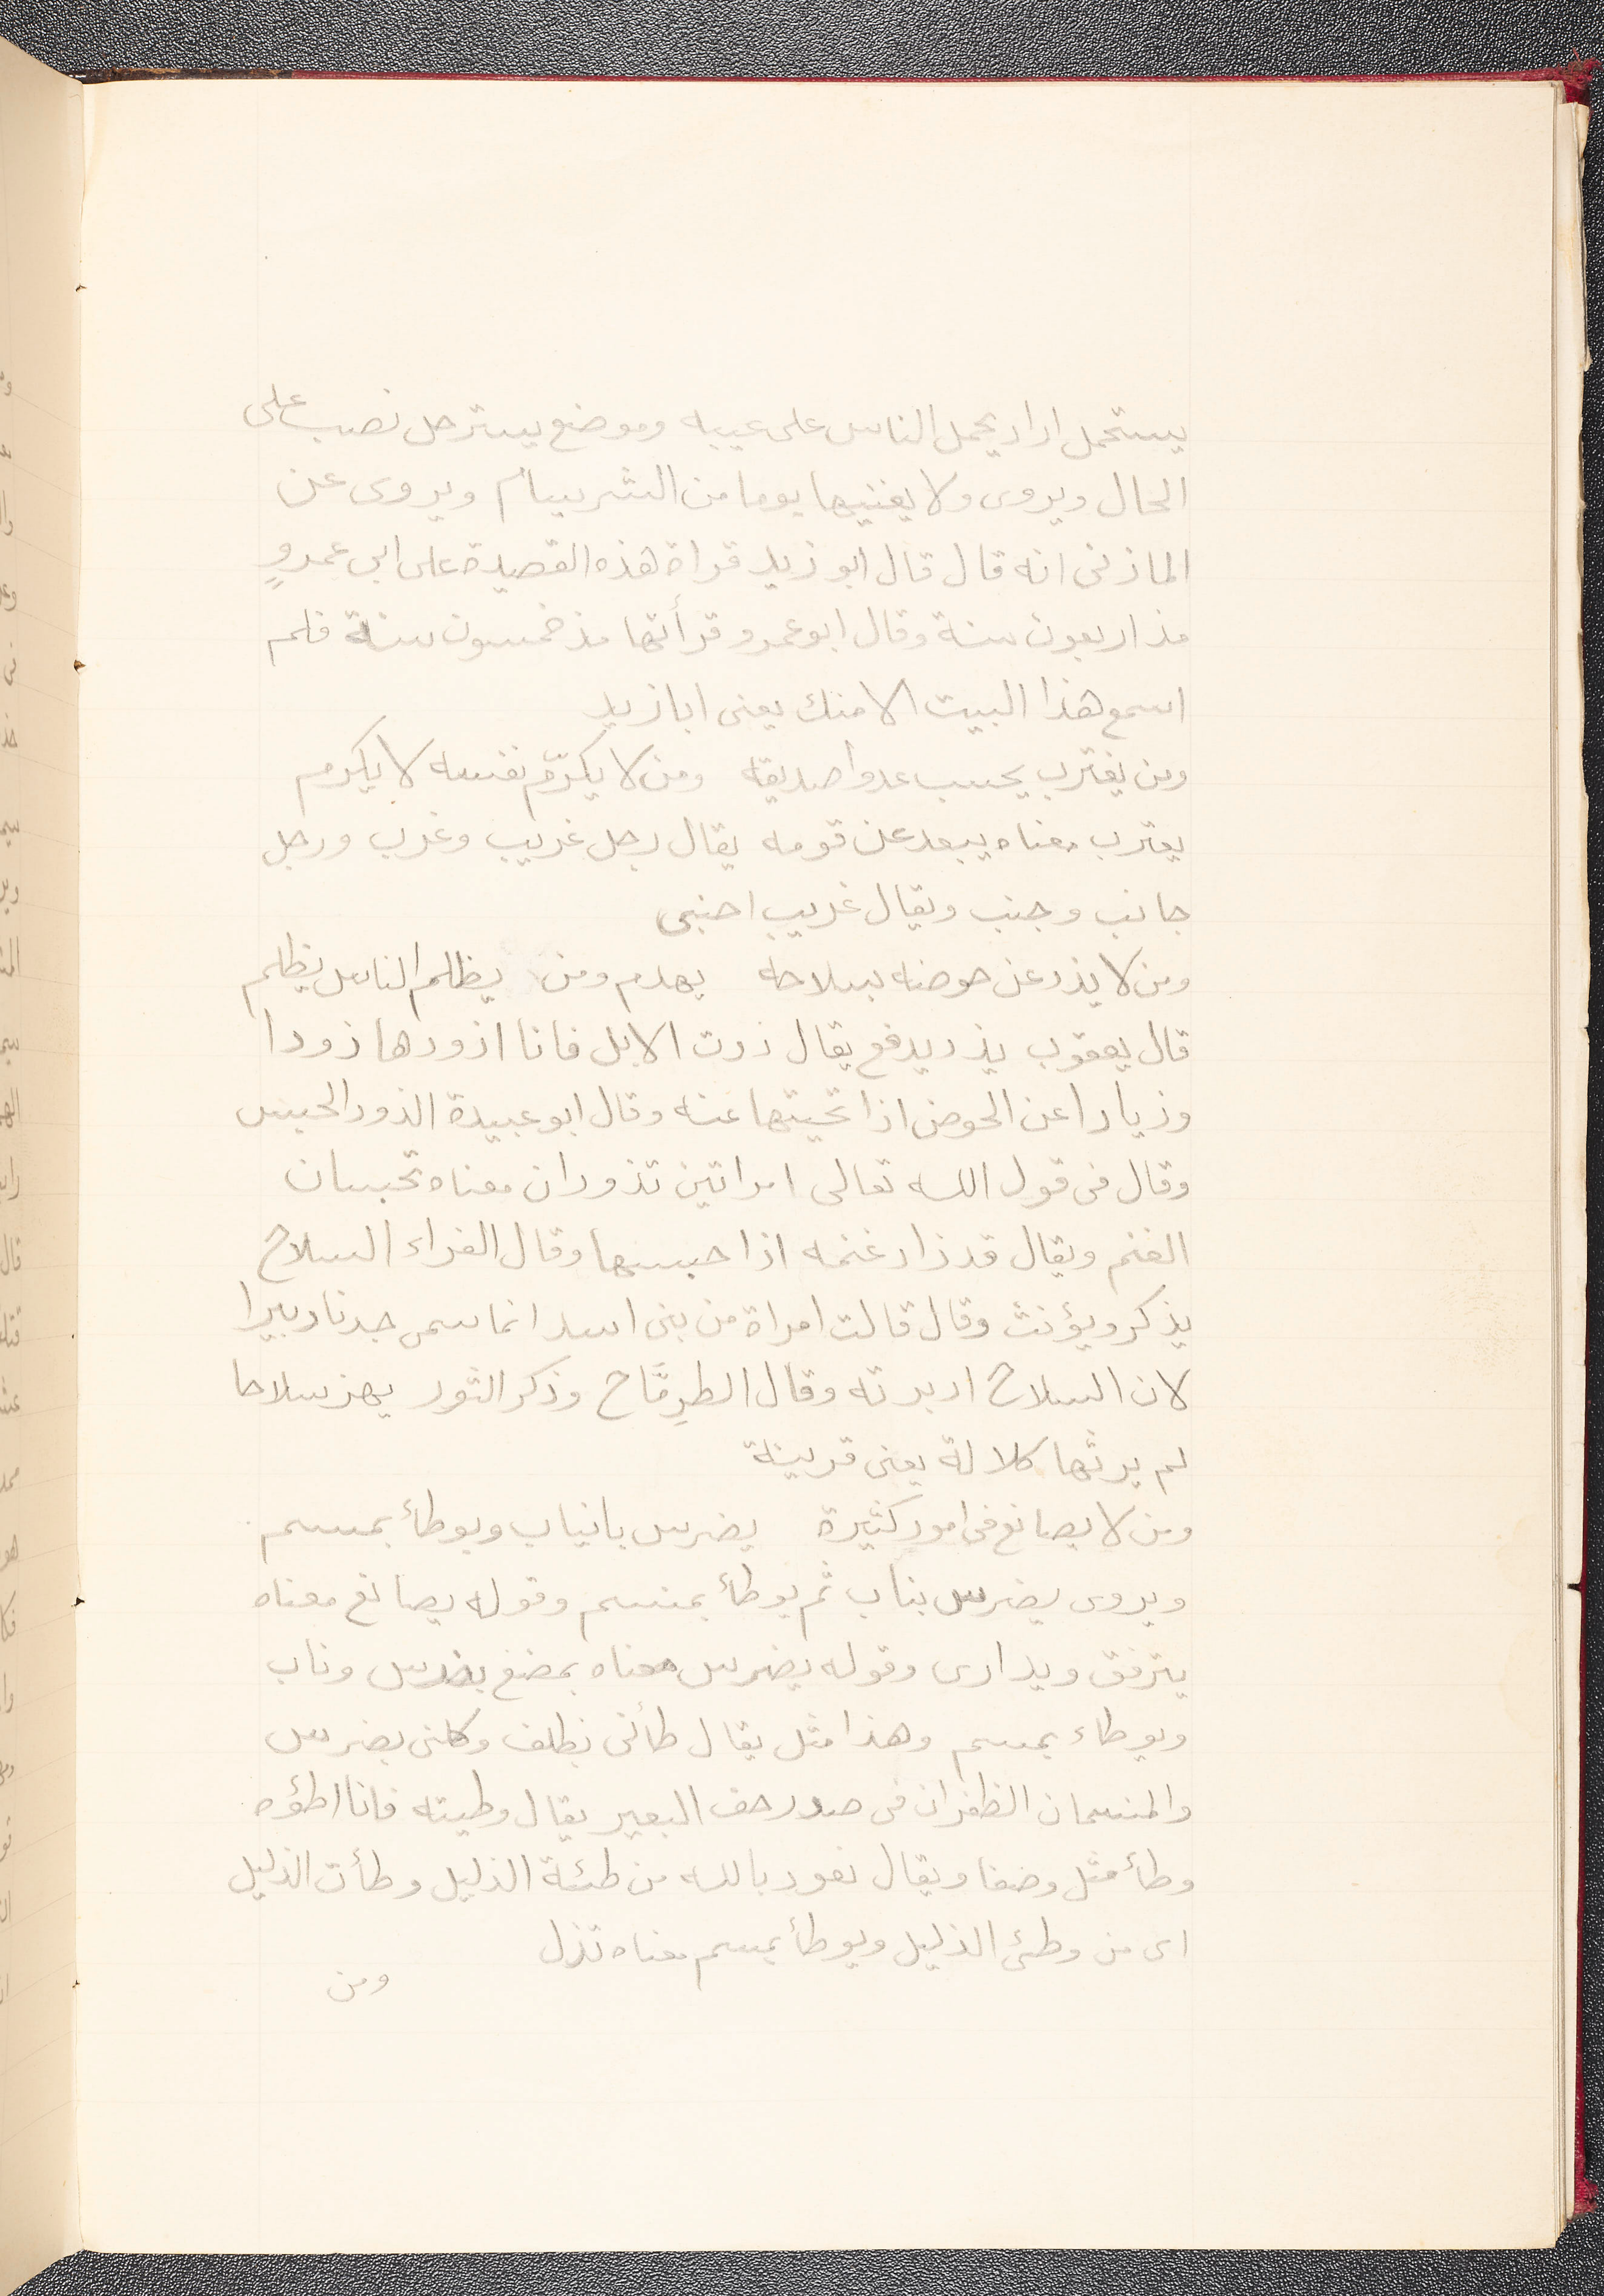 يستحمل اراد يحمل الناس على عيبه وموضع يسترحل نصب على
الحال ويروى ولا يغنيها يوما من الشر يسام ويروى عن
المازنى انه قال قال ابو زيد قراة هذه القصيدة على ابى عمروٍ
مذ اربعون سنة وقال ابو عمرو قرأتها مذ خمسون سنة فلم
اسمع هذا البيت الا منك يعنى ابا زيد
ومن يغترب يحسب عدوا صديقه ومن لا يكرّم نفسه لا يكرم
يغترب معناه يبعد عن قومه يقال رجل غريب وغرب ورجل
جانب وجنب ويقال غريب اجنبى
ومن لا يذد عن حوضه بسلاحه يهدم ومن يظلم الناس يظلم
قال يعقوب يذد يدفع يقال ذدت الابل فانا اذودها ذودا
وذيادا عن الحوض اذا نحيتها عنه وقال ابو عبيدة الذود الحبس
وقال فى قول الله تعالى امراتين تذودان معناه تحبسان
الغنم ويقال قد ذاد غنمه اذا حبسها وقال الفراء السلاح
يذكر ويؤنث وقال قالت امراة من بنى اسد انما سمى جدنا دبيرا
لان السلاح ادبرته وقال الطرِمَّاح وذكر الثور يهز سلاحا
لم يرثها كلالة يعنى قرينة
ومن لا يصانع فى امور كثيرة يضرس بانياب ويوطأ بمنسم
ويروى يضرس بناب ثم يوطأ بمنسم وقوله يصانع معناه
يترفق ويدارى وقوله يضرس معناه يمضغ بضرس وناب
ويوطاء بمنسم وهذا مثل يقال طأنى بظلف وكلنى بضرس
والمنسمان الظفران فى صدر خف البعير يقال وطيته فانا اطؤه
وطأ مثل وضفا ويقال نعود بالله من طئة الذليل وطأت الذليل
اى من وطئ الذليل ويوطأ بمنسم معناه تذل
ومن